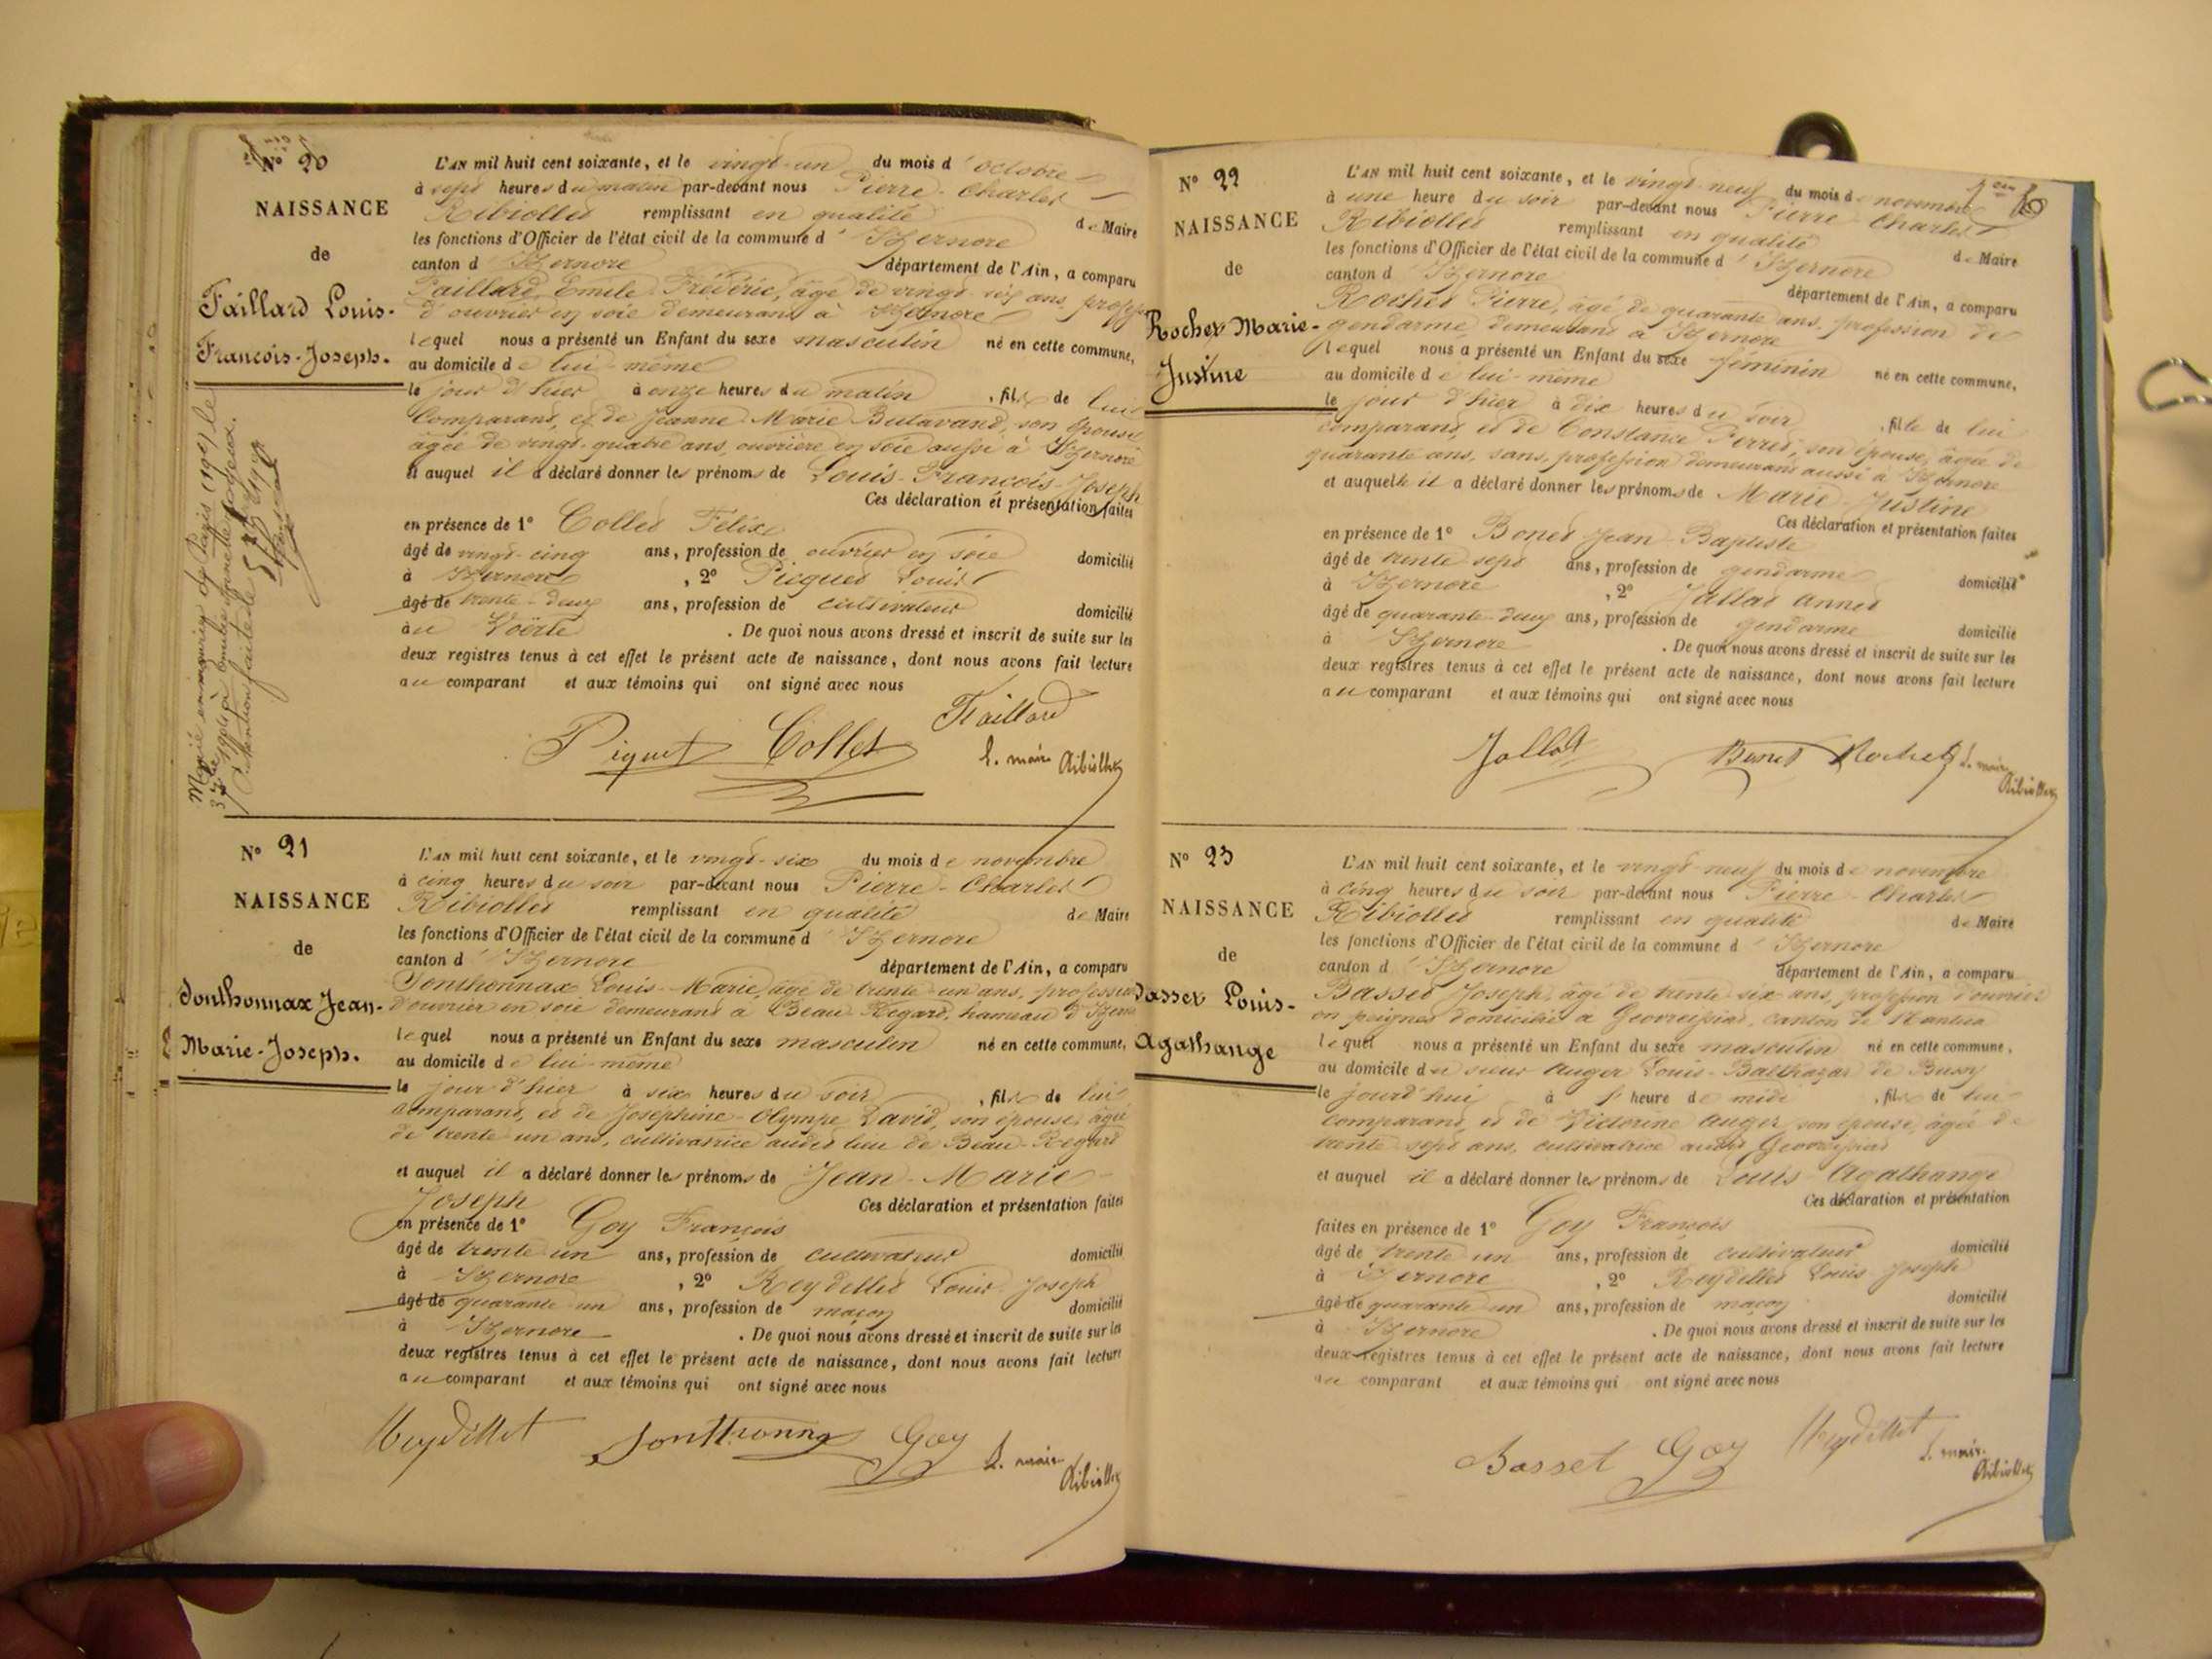 N° 20
NAISSANCE
de
Faillard Louis-
François-Joseph.
L'AN mil huit cent soixante, et le vingt-un du mois d'octobre
à sept heures du matin par-devant nous Pierre-Charles
Ribiollet remplissant en qualité de Maire
les fonctions d'Officier de l'état civil de la commune d'Izernore
canton d'Izernore département de l'Ain, a comparu
Faillard, Emile Frédéric, âgé de vingt-six ans, profession
d'ouvrier en soie demeurant à Izernore
lequel nous a présenté un Enfant du sexe masculin né en cette commune,
au domicile de lui-même
le jour d'hier à onze heures du matin, fils de lui
Comparant, et de Jeanne-Marie Butavand, son épouse
âgée de vingt-quatre ans, ouvrière en soie aussi à Izernore
et auquel il a déclaré donner les prénoms de Louis-François-Joseph
Ces déclaration et présentation faites
en présence de 1° Collet Félix
âgé de vingt-cinq ans, profession de ouvrier en soie domicilié
à Izernore, 2° Picquet Louis
âgé de trente-deux ans, profession de cultivateur domicilié
au Voërle. De quoi nous avons dressé et inscrit de suite sur les
deux registres tenus à cet effet le présent acte de naissance, dont nous avons fait lecture
au comparant et aux témoins qui ont signé avec nous
Piquet Collet Faillard
L. maire Ribiollet
Marié en mairie de Paris
N° 21
NAISSANCE
de
Jonthonnax Jean-
Marie-Joseph.
L'AN mil huit cent soixante, et le vingt-six du mois de novembre
à cinq heures du soir par-devant nous Pierre-Charles
Ribiollet remplissant en qualité de Maire
les fonctions d'Officier de l'état civil de la commune d'Izernore
canton d'Izernore département de l'Ain, a comparu
Jonthonnax Louis-Marie, âgé de trente-un ans, profession
d'ouvrier en soie demeurant à Beau-Regard, hameau d'Izernore
lequel nous a présenté un Enfant du sexe masculin né en cette commune,
au domicile de lui-même
le jour d'hier à six heures du soir, fils de lui
comparant, et de Josephine-Olympe David, son épouse, âgée
de trente-un ans, cultivatrice audit lieu de Beau-Regard
et auquel il a déclaré donner les prénoms de Jean-Marie-
Joseph Ces déclaration et présentation faites
en présence de 1° Goy François
âgé de trente-un ans, profession de cultivateur domicilié
à Izernore, 2° Reydellet Louis Joseph
âgé de quarante-un ans, profession de maçon domicilié
à Izernore. De quoi nous avons dressé et inscrit de suite sur les
deux registres tenus à cet effet le présent acte de naissance, dont nous avons fait lecture
au comparant et aux témoins qui ont signé avec nous
Reydellet Jonthonnax Goy L. maire
Ribiollet
N° 22
NAISSANCE
de
Rochet Marie-
Justine
L'AN mil huit cent soixante, et le vingt-neuf du mois de novembre
à une heure du soir par-devant nous Pierre-Charles
Ribiollet remplissant en qualité de Maire
les fonctions d'Officier de l'état civil de la commune d'Izernore
canton d'Izernore département de l'Ain, a comparu
Rochet Pierre, âgé de quarante ans, profession de
gendarme demeurant à Izernore
lequel nous a présenté un Enfant du sexe féminin né en cette commune,
au domicile de lui-même
le jour d'hier à dix heures du soir, fille de lui
comparant, et de Constance Perret, son épouse, âgée de
quarante ans, sans profession demeurant aussi à Izernore
et auquelle il a déclaré donner les prénoms de Marie-Justine
Ces déclaration et présentation faites
en présence de 1° Bonet Jean-Baptiste
âgé de trente-sept ans, profession de gendarme domicilié
à Izernore, 2° Jallat
âgé de quarante-deux ans, profession de gendarme domicilié
à Izernore. De quoi nous avons dressé et inscrit de suite sur les
deux registres tenus à cet effet le présent acte de naissance, dont nous avons fait lecture
au comparant et aux témoins qui ont signé avec nous
Jallat Bonet Rochet L. maire
Ribiollet
N° 23
NAISSANCE
de
Basset Louis-
Agathange
L'AN mil huit cent soixante, et le vingt-neuf du mois de novembre
à cinq heures du soir par-devant nous Pierre-Charles
Ribiollet remplissant en qualité de Maire
les fonctions d'Officier de l'état civil de la commune d'Izernore
canton d'Izernore département de l'Ain, a comparu
Basset Joseph, âgé de trente-six ans, profession d'ouvrier
en peignes domicilié à Geovreissiat, canton de Nantua
lequel nous a présenté un Enfant du sexe masculin né en cette commune,
au domicile du sieur Auger Louis-Balthazar de Bussy
le jourd'hui à 1 heure de midi, fils de lui
comparant, et de Victorine Auger, son épouse, âgée de
trente-sept ans, cultivatrice audit Geovreissiat
et auquel il a déclaré donner les prénoms de Louis-Agathange
Ces déclaration et présentation
faites en présence de 1° Goy François
âgé de trente-un ans, profession de cultivateur domicilié
à Izernore, 2° Reydellet Louis Joseph
âgé de quarante-un ans, profession de maçon domicilié
à Izernore. De quoi nous avons dressé et inscrit de suite sur les
deux registres tenus à cet effet le présent acte de naissance, dont nous avons fait lecture
au comparant et aux témoins qui ont signé avec nous
Basset Goy Reydellet L. maire
Ribiollet